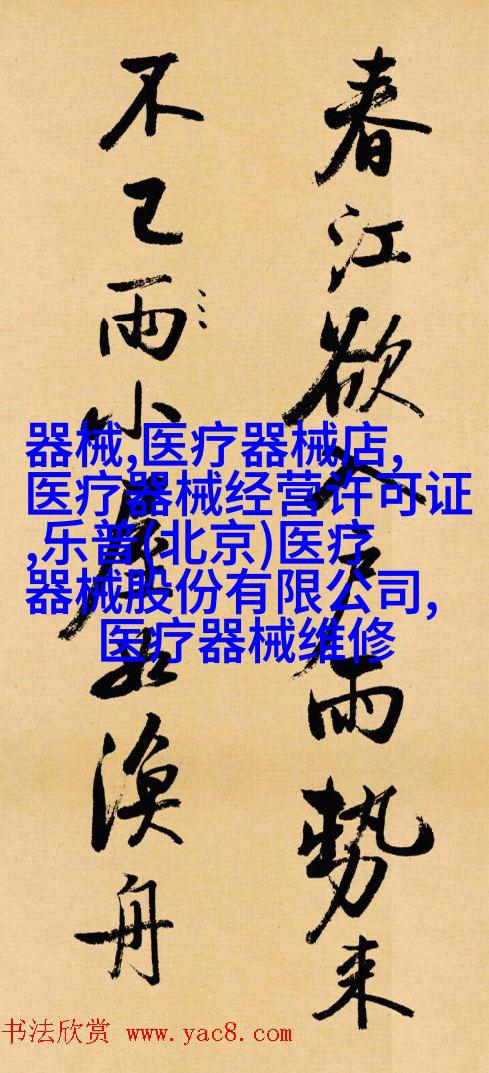 春江欲入户雨勢来
不已雨小屋如漁舟
器械,医疗器械店,
医疗器械经营许可证
,乐普(北京)医疗
器械股份有限公司,
医疗器械维修
书法欣赏 www.yac8.com